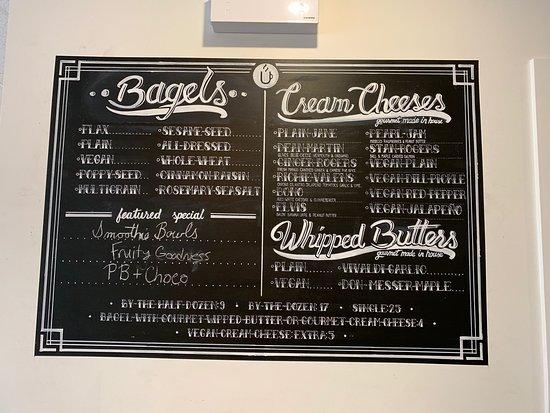 Bagels
FLAX
PLAIN
VEGAN
POPPY-SEED
MULTIGRAIN
SESAME-SEED
ALL-DRESSED
WHOLE-WHEAT
CINNAMON-RAISIN
ROSEMARY-SEASALT
featured special
Smoothie Bowls
Fruity Goodness
PB + Choco
Ú
Cream Cheeses
gourmet made in house
PLAIN-JANE
DEAN-MARTIN
GINGER-ROGERS
RICHIE-VALENS
BONO
ELVIS
PEARL-JAM
STAN-ROGERS
VEGAN-PLAIN
VEGAN-DILL-PICKLE
VEGAN-RED-PEPPER
VEGAN-JALAPEÑO
Whipped Butters
gourmet made in house
PLAIN
VEGAN
VIVALDI-GARLIC
DON-MESSER-MAPLE
BY-THE-HALF-DOZEN:9 BY-THE-DOZEN:17 SINGLE:2.5
BAGEL-WITH-GOURMET-WIPPED-BUTTER-OR-GOURMET-CREAM-CHEESE:4
VEGAN-CREAM-CHEESE-EXTRA:.5